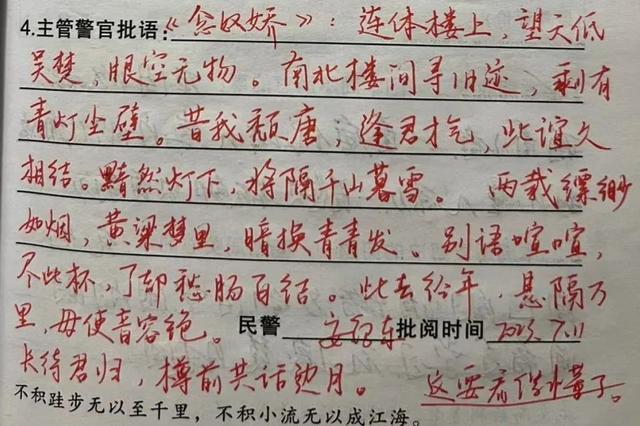 4.主管警官批语:《念奴娇》：连体楼上，望天低
吴楚，眼空无物。南北楼间寻旧迹，剩有
青灯尘壁。昔我颓唐，逢君才气，此谊久
相结。黯然灯下，将隔千山暮雪。 两载缥缈
如烟，黄梁梦里，暗换青青发。别语喧喧，
尽此杯，了却愁肠百结。此去经年，悬隔万
里，毋使音容绝。 民警 批阅时间 2025.7.11
长待君归，樽前共话边月。 这要看
不积跬步无以至千里，不积小流无以成江海。